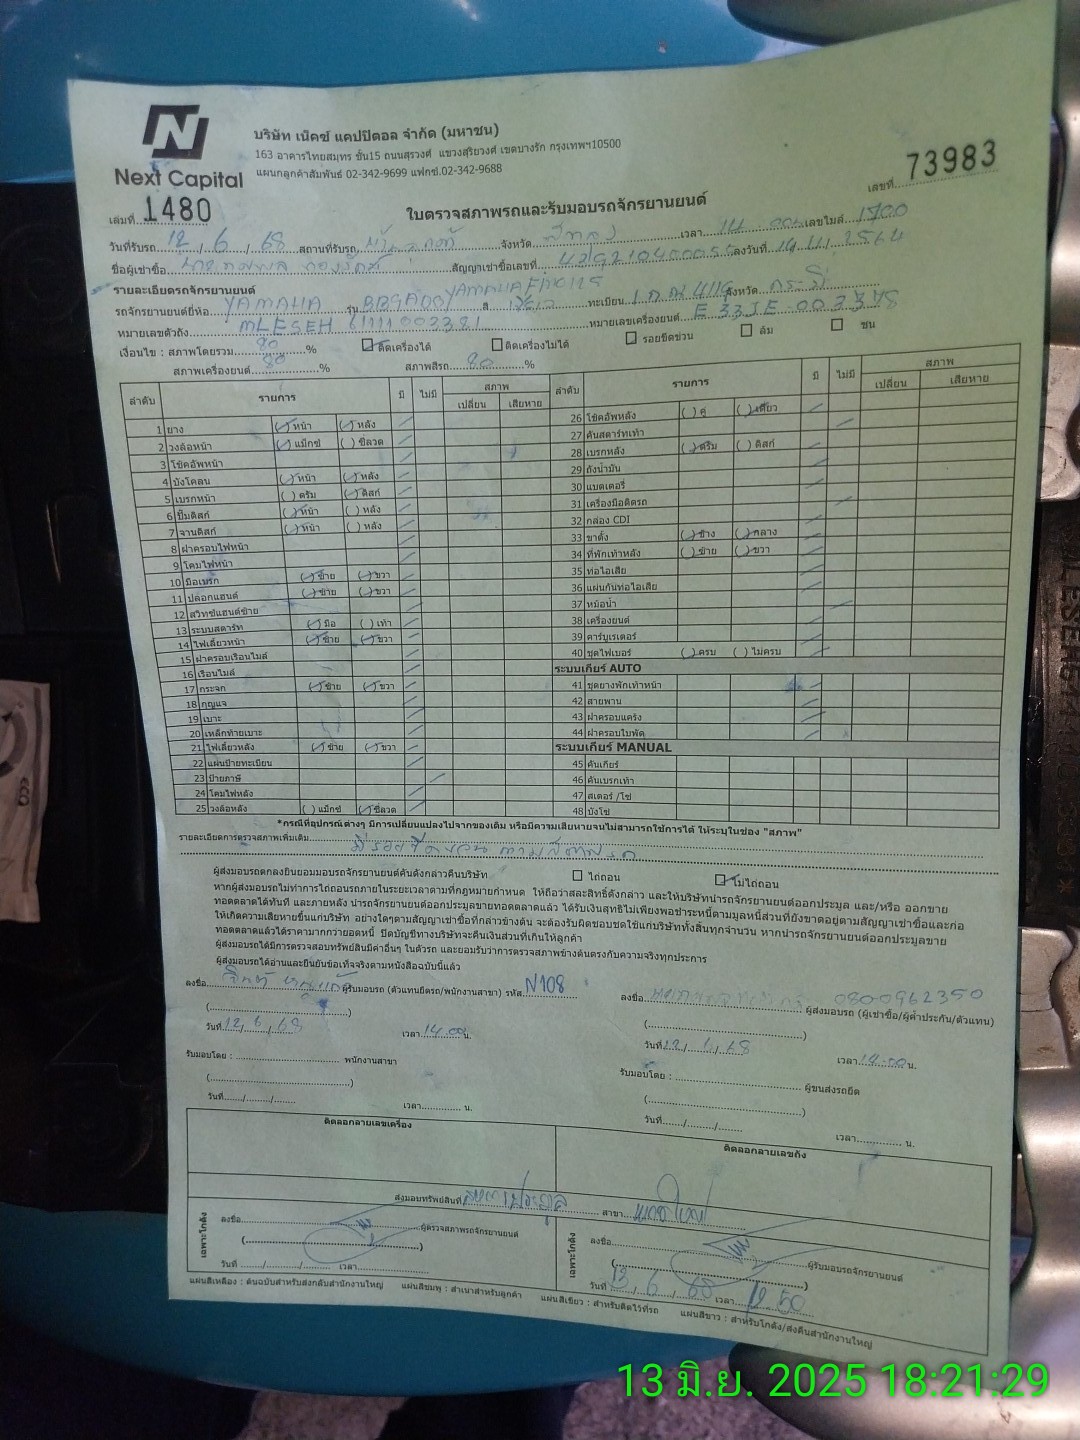 Next Capital
บริษัท เน็คซ์ แคปปิตอล จำกัด (มหาชน)
163 อาคารไทยสมุทร ชั้น15 ถนนสุรวงศ์ แขวงสุริยวงศ์ เขตบางรัก กรุงเทพฯ10500
แผนกลูกค้าสัมพันธ์ 02-342-9699 แฟกซ์.02-342-9688
เล่มที่ 1480
เลขที่ 73983
ใบตรวจสภาพรถและรับมอบรถจักรยานยนต์
วันที่รับรถ 12 / 6 / 68 สถานที่รับรถ จังหวัด เวลา 14.00น เลขไมล์ 1700
ชื่อผู้เช่าซื้อ สัญญาเช่าซื้อเลขที่ ลงวันที่ 2564
รายละเอียดรถจักรยานยนต์
รถจักรยานยนต์ยี่ห้อ YAMAHA รุ่น สี ทะเบียน จังหวัด กระบี่
หมายเลขตัวถัง หมายเลขเครื่องยนต์
เงื่อนไข : สภาพโดยรวม 80 % ติดเครื่องได้ ติดเครื่องไม่ได้ รอยขีดข่วน ล้ม ชน
สภาพเครื่องยนต์ 80 % สภาพสีรถ 80 %
ลำดับ รายการ มี ไม่มี สภาพ เปลี่ยน เสียหาย ลำดับ รายการ มี ไม่มี สภาพ เปลี่ยน เสียหาย
1 ยาง หน้า หลัง
2 วงล้อหน้า แม็กซ์ ซี่ลวด
3 โช๊คอัพหน้า
4 บังโคลน หน้า หลัง
5 เบรกหน้า ดรัม ดิสก์
6 ปั๊มดิสก์ หน้า หลัง
7 จานดิสก์ หน้า หลัง
8 ฝาครอบไฟหน้า
9 โคมไฟหน้า
10 มือเบรก ซ้าย ขวา
11 ปลอกแฮนด์ ซ้าย ขวา
12 สวิทช์แฮนด์ซ้าย
13 ระบบสตาร์ท มือ เท้า
14 ไฟเลี้ยวหน้า ซ้าย ขวา
15 ฝาครอบเรือนไมล์
16 เรือนไมล์
17 กระจก ซ้าย ขวา
18 กุญแจ
19 เบาะ
20 เหล็กท้ายเบาะ
21 ไฟเลี้ยวหลัง ซ้าย ขวา
22 แผ่นป้ายทะเบียน
23 ป้ายภาษี
24 โคมไฟหลัง
25 วงล้อหลัง แม็กซ์ ซี่ลวด
26 โช๊คอัพหลัง คู่ เดี่ยว
27 คันสตาร์ทเท้า
28 เบรกหลัง ดรัม ดิสก์
29 ถังน้ำมัน
30 แบตเตอรี่
31 เครื่องมือติดรถ
32 กล่อง CDI
33 ขาตั้ง ข้าง กลาง
34 ที่พักเท้าหลัง ซ้าย ขวา
35 ท่อไอเสีย
36 แผ่นกันท่อไอเสีย
37 หม้อน้ำ
38 เครื่องยนต์
39 คาร์บูเรเตอร์
40 ชุดไฟเบอร์ ครบ ไม่ครบ
ระบบเกียร์ AUTO
41 ชุดยางพักเท้าหน้า
42 สายพาน
43 ฝาครอบแคร้ง
44 ฝาครอบใบพัด
ระบบเกียร์ MANUAL
45 คันเกียร์
46 คันเบรกเท้า
47 สเตอร์ /โซ่
48 บังโซ่
*กรณีที่อุปกรณ์ต่างๆ มีการเปลี่ยนแปลงไปจากของเดิม หรือมีความเสียหายจนไม่สามารถใช้การได้ ให้ระบุในช่อง "สภาพ"
รายละเอียดการตรวจสภาพเพิ่มเติม มีรอยขีดข่วน ตามสภาพรถ
ผู้ส่งมอบรถตกลงยินยอมมอบรถจักรยานยนต์คันดังกล่าวคืนบริษัท ไถ่ถอน ไม่ไถ่ถอน
หากผู้ส่งมอบรถไม่ทำการไถ่ถอนรถภายในระยะเวลาตามที่กฎหมายกำหนด ให้ถือว่าสละสิทธิ์ดังกล่าว และให้บริษัทนำรถจักรยานยนต์ออกประมูล และ/หรือ ออกขาย
ทอดตลาดได้ทันที และภายหลัง นำรถจักรยานยนต์ออกประมูลขายทอดตลาดแล้ว ได้รับเงินสุทธิไม่เพียงพอชำระหนี้ตามมูลหนี้ส่วนที่ยังขาดอยู่ตามสัญญาเช่าซื้อและก่อ
ให้เกิดความเสียหายขึ้นแก่บริษัท อย่างใดๆตามสัญญาเช่าซื้อที่กล่าวข้างต้น จะต้องรับผิดชอบชดใช้แก่บริษัททั้งสิ้นทุกจำนวน หากนำรถจักรยานยนต์ออกประมูลขาย
ทอดตลาดแล้วได้ราคามากกว่ายอดหนี้ ปิดบัญชีทางบริษัทจะคืนเงินส่วนที่เกินให้ลูกค้า
ผู้ส่งมอบรถได้มีการตรวจสอบทรัพย์สินมีค่าอื่นๆ ในตัวรถ และยอมรับว่าการตรวจสภาพข้างต้นตรงกับความจริงทุกประการ
ผู้ส่งมอบรถได้อ่านและยืนยันข้อเท็จจริงตามหนังสือฉบับนี้แล้ว
ลงชื่อ ผู้รับมอบรถ (ตัวแทนยึดรถ/พนักงานสาขา) รหัส N108
ลงชื่อ 0800962350 ผู้ส่งมอบรถ (ผู้เช่าซื้อ/ผู้ค้ำประกัน/ตัวแทน)
วันที่ 12 / 6 / 68 เวลา 14.00 น.
วันที่ 12 / 6 / 68 เวลา 14.00 น.
รับมอบโดย : พนักงานสาขา
รับมอบโดย : ผู้ขนส่งรถยึด
วันที่ / / เวลา น.
วันที่ / / เวลา น.
ติดลอกลายเลขเครื่อง ติดลอกลายเลขถัง
ส่งมอบทรัพย์สินที่ สาขา
เฉพาะโกดัง ลงชื่อ ผู้ตรวจสภาพรถจักรยานยนต์
เฉพาะโกดัง ลงชื่อ ผู้รับมอบรถจักรยานยนต์
วันที่ / / เวลา
วันที่ 13 / 6 / 68 เวลา 12.50
แผ่นสีเหลือง : ต้นฉบับสำหรับส่งกลับสำนักงานใหญ่ แผ่นสีชมพู : สำเนาสำหรับลูกค้า แผ่นสีเขียว : สำหรับติดไว้ที่รถ แผ่นสีขาว : สำหรับโกดัง/ส่งคืนสำนักงานใหญ่
13 มิ.ย. 2025 18:21:29